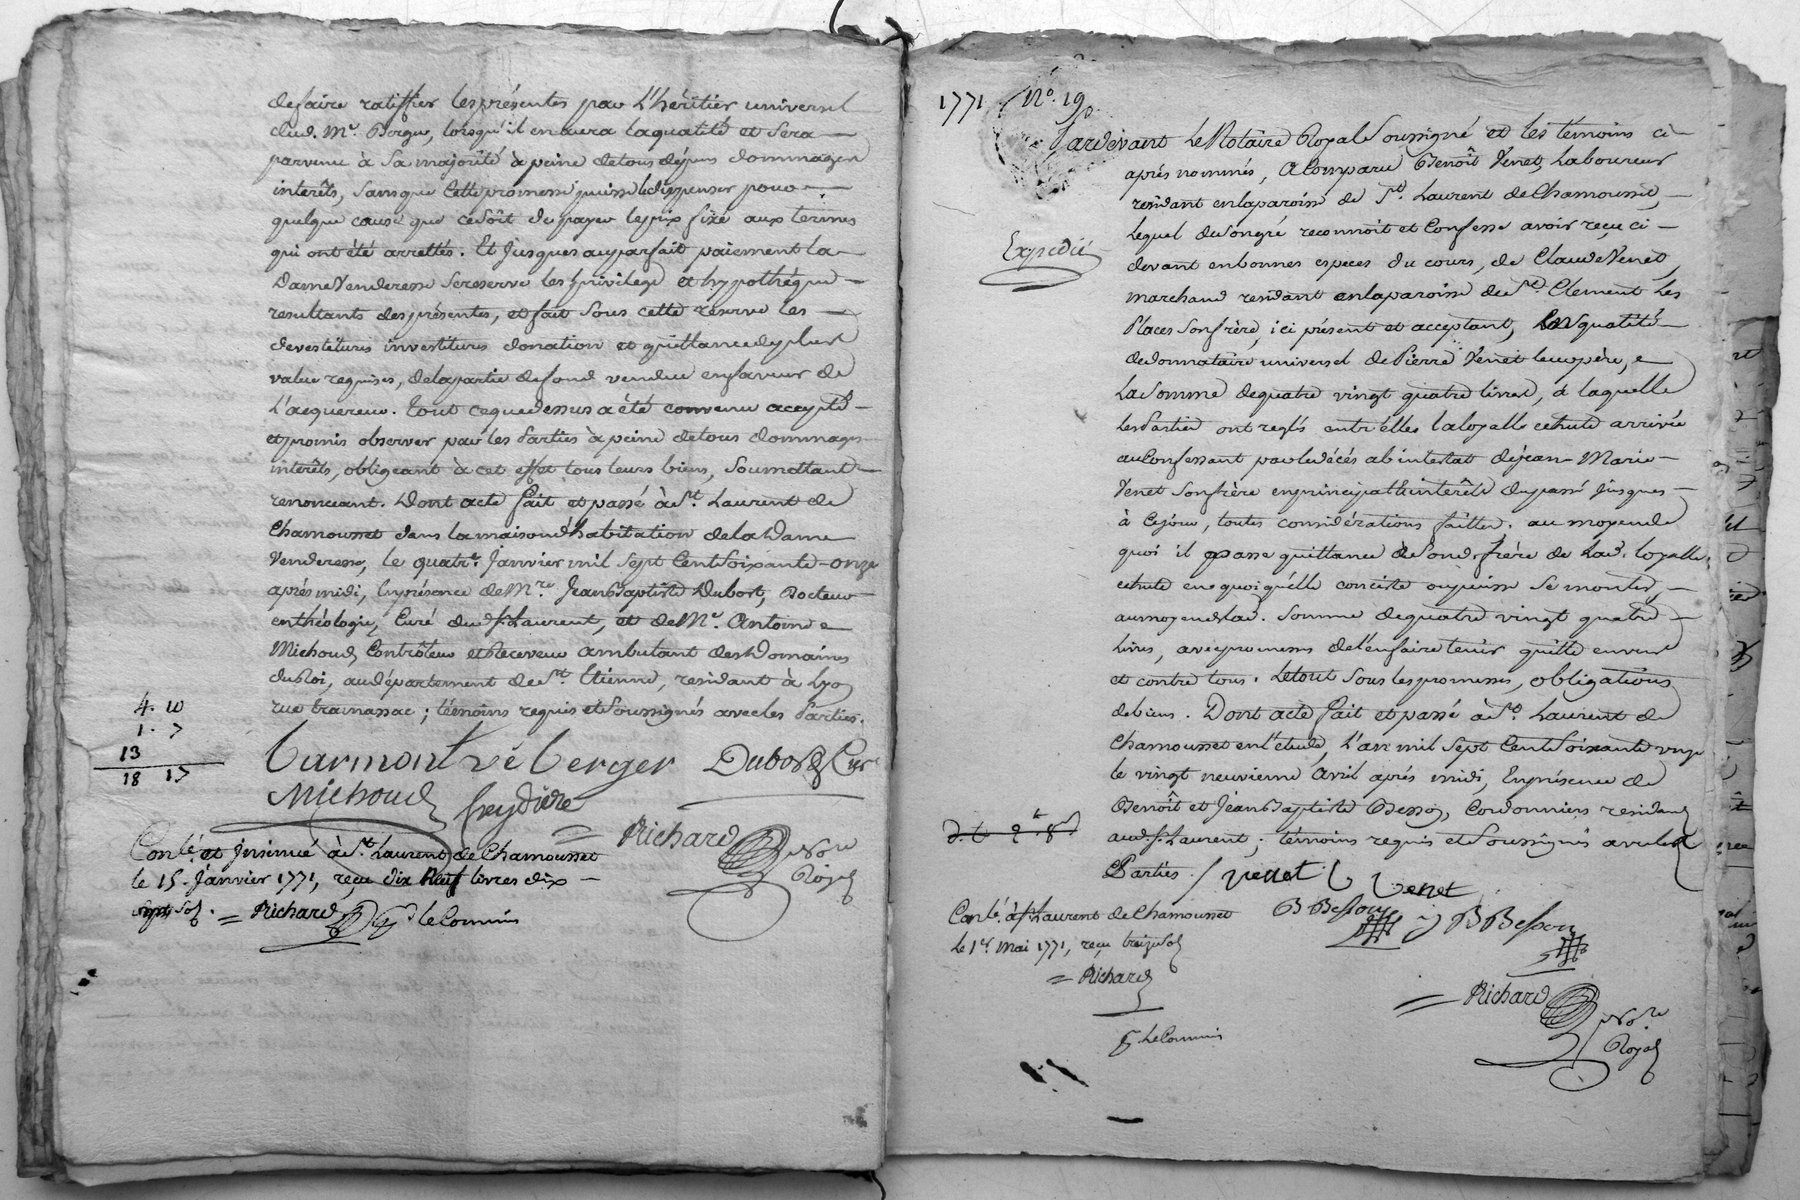 de faire ratiffier les présentes par L'héritier universel
dud. Mr. Berger, lorsqu'il en aura la qualité et sera
parvenu à sa majorité à peine de tous dépens dommages
interêts, sans que cette promesse puisse le dispenser pour
quelque cause que ce soit de payer le prix fixé aux termes
qui ont été arrettés. Et jusques au parfait paiement la
Dame Venderesse se reserve les privilege et hypothéque
resultants des présentes, et fait sous cette réserve les
devestitures investitures donation et quittance de plus
value requises, de la partie de fond vendue en faveur de
L'acquereur. tout ce que dessus a été convenu accepté
et promis observer par les Parties à peine de tous dommages
intérêts, obligeant à cet effet tous leurs biens, soumettant
renonceant. Dont acte fait et passé à St. Laurent de
Chamousset dans la maison d'habitation de la Dame
Venderesse, le quatre Janvier mil sept cent soixante-onze
aprés midi, En présence de Mre. Jean Baptiste Dubost, Docteur
en théologie, Curé dud. St. Laurent, et de Mr. Antoine
Michoud Contrôleur et Receveur ambulant des Domaines
du Roi, au département de St. Etienne, residant à Lyon
rue tramassac; témoins requis et soussignés avec les Parties.
4. 10
1. 7
13
18 17
Carmont vē berger Dubost Curé
Michoud freydière
= Richard Nore
Royal
Conlé. et insinué à St. Laurent de Chamousset
le 15. Janvier 1771, reçu dix Neuf livres dix
sept sols. = Richard le Commis
1771 No. 19
Pardevant Le Notaire Royal Soussigné et les témoins ci-
aprés nommés, A Comparu Benoît Venet, Laboureur
residant en la paroisse de St. Laurent de Chamousset,
Lequel de son gré reconnoit et Confesse avoir reçu ci
Expedié
devant en bonnes especes du cours, de Claude Venet,
marchand residant en la paroisse de St. Clement Les
Places son frère, ici présent et acceptant, En qualité
de donnataire universel de Pierre Venet leur père,
La Somme de quatre vingt quatre livres, à laquelle
Les Parties ont reglé entr'elles la loyalle echute arrivée
au Confessant par le décés ab intestat de jean-Marie
Venet Son frère en principal interêts du passé jusques
à ce jour, toutes considérations faittes. au moyen de
quoi il passe quittance à Sond. frère de Lad. loyalle
echute en quoi qu'elle conciste ou puisse se monter,
au moyen de lad. somme de quatre vingt quatre
Livres, avec promesse de l'en faire tenir quitte envers
et contre tous. Le tout sous les promesses, obligations
de biens. Dont acte fait et passé à St. Laurent de
Chamousset en l'étude, L'an mil sept Cent Soixante onze
le vingt neuvieme avril aprés midi, En présence de
Benoît et Jean Baptiste Besson, Cordonniers residans
aud. St. Laurent; témoins requis et Soussignés avec les
Parties. / Venet C Venet
B Besson j B Besson
Conlé. à St. Laurent de Chamousset
Le 1er. Mai 1771, reçu treize sols
= Richard
le Commis
= Richard Nore
Royal